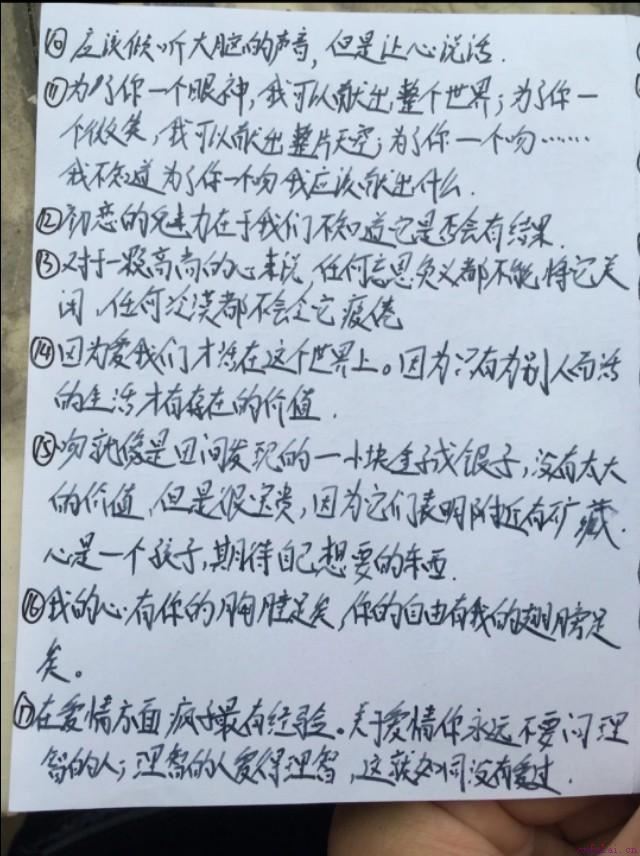 ⑩应该倾听大脑的声音，但是让心说话.
⑪为了你一个眼神，我可以献出整个世界；为了你一
个微笑，我可以献出整片天空；为了你一个吻……
我不知道为了你一个吻我应该献出什么.
⑫初恋的魅力在于我们不知道它是否会有结果.
⑬对于一颗高尚的心来说，任何忘恩负义都不能将它关
闭，任何冷漠都不会令它疲倦
⑭因为爱我们才活在这个世界上。因为只有为别人而活
的生活才有存在的价值.
⑮吻就像是田间发现的一小块金子或银子，没有太大
的价值，但是很宝贵，因为它们表明附近有矿藏.
心是一个孩子，期待自己想要的东西.
⑯我的心有你的胸膛足矣，你的自由有我的翅膀足
矣。
⑰在爱情方面疯子最有经验。关于爱情你永远不要问理
智的人；理智的人爱得理智，这就如同没有爱过.